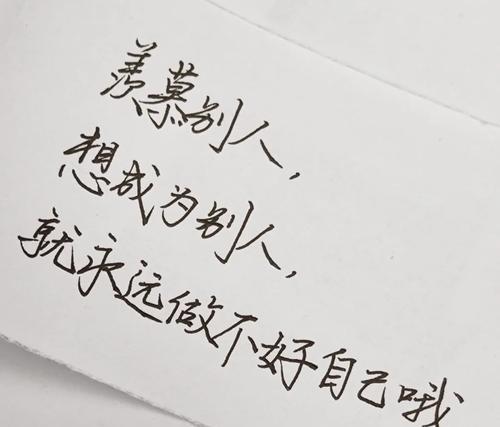 羡慕别人，
想成为别人，
就永远做不好自己哦